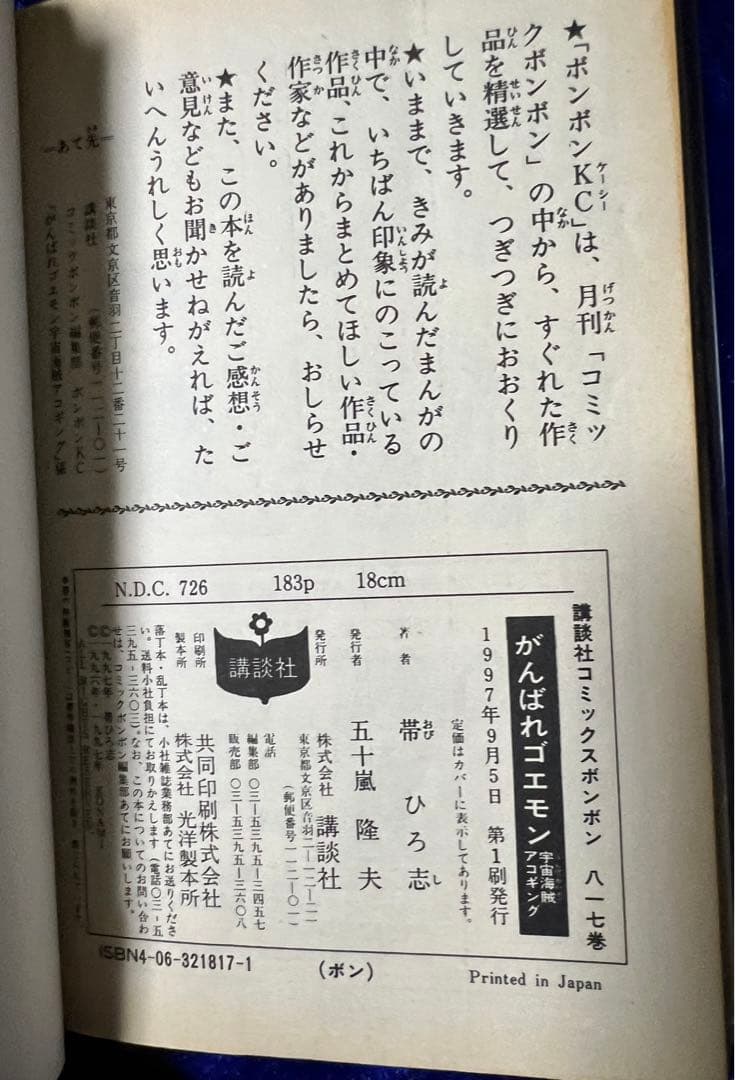 ★「ボンボンKC」は、月刊「コミッ
クボンボン」の中から、すぐれた作
品を精選して、つぎつぎにおおくり
していきます。
★いままで、きみが読んだまんがの
中で、いちばん印象にのこっている
作品、これからまとめてほしい作品・
作家などがありましたら、おしらせ
ください。
★また、この本を読んだご感想・ご
意見などもお聞かせねがえれば、た
いへんうれしく思います。
＝あて先＝
東京都文京区音羽二丁目十二番二十一号
講談社 (郵便番号一一二-〇一)
コミックボンボン編集部 ボンボンKC
「がんばれゴエモン宇宙海賊アコギング」係
N.D.C. 726 183p 18cm
講談社コミックスボンボン 八一七巻
がんばれゴエモン 宇宙海賊アコギング
1997年9月5日 第1刷発行
定価はカバーに表示してあります。
著者 帯 ひろ志
発行者 五十嵐 隆夫
発行所 株式会社 講談社
東京都文京区音羽二-一二-二一
(郵便番号一一二-〇一)
電話
編集部 〇三-五三九五-三四五七
販売部 〇三-五三九五-三六〇八
講談社
印刷所 共同印刷株式会社
製本所 株式会社 光洋製本所
落丁本・乱丁本は、小社雑誌業務部あてにお送りくださ
い。送料小社負担にてお取りかえします(電話〇三-五
三九五-三六〇三)。なお、この本についてのお問い合わ
せは、コミックボンボン編集部あてにお願いします。
©一九九七年 帯ひろ志
©一九九六年・一九九七年
ISBN4-06-321817-1
(ボン)
Printed in Japan